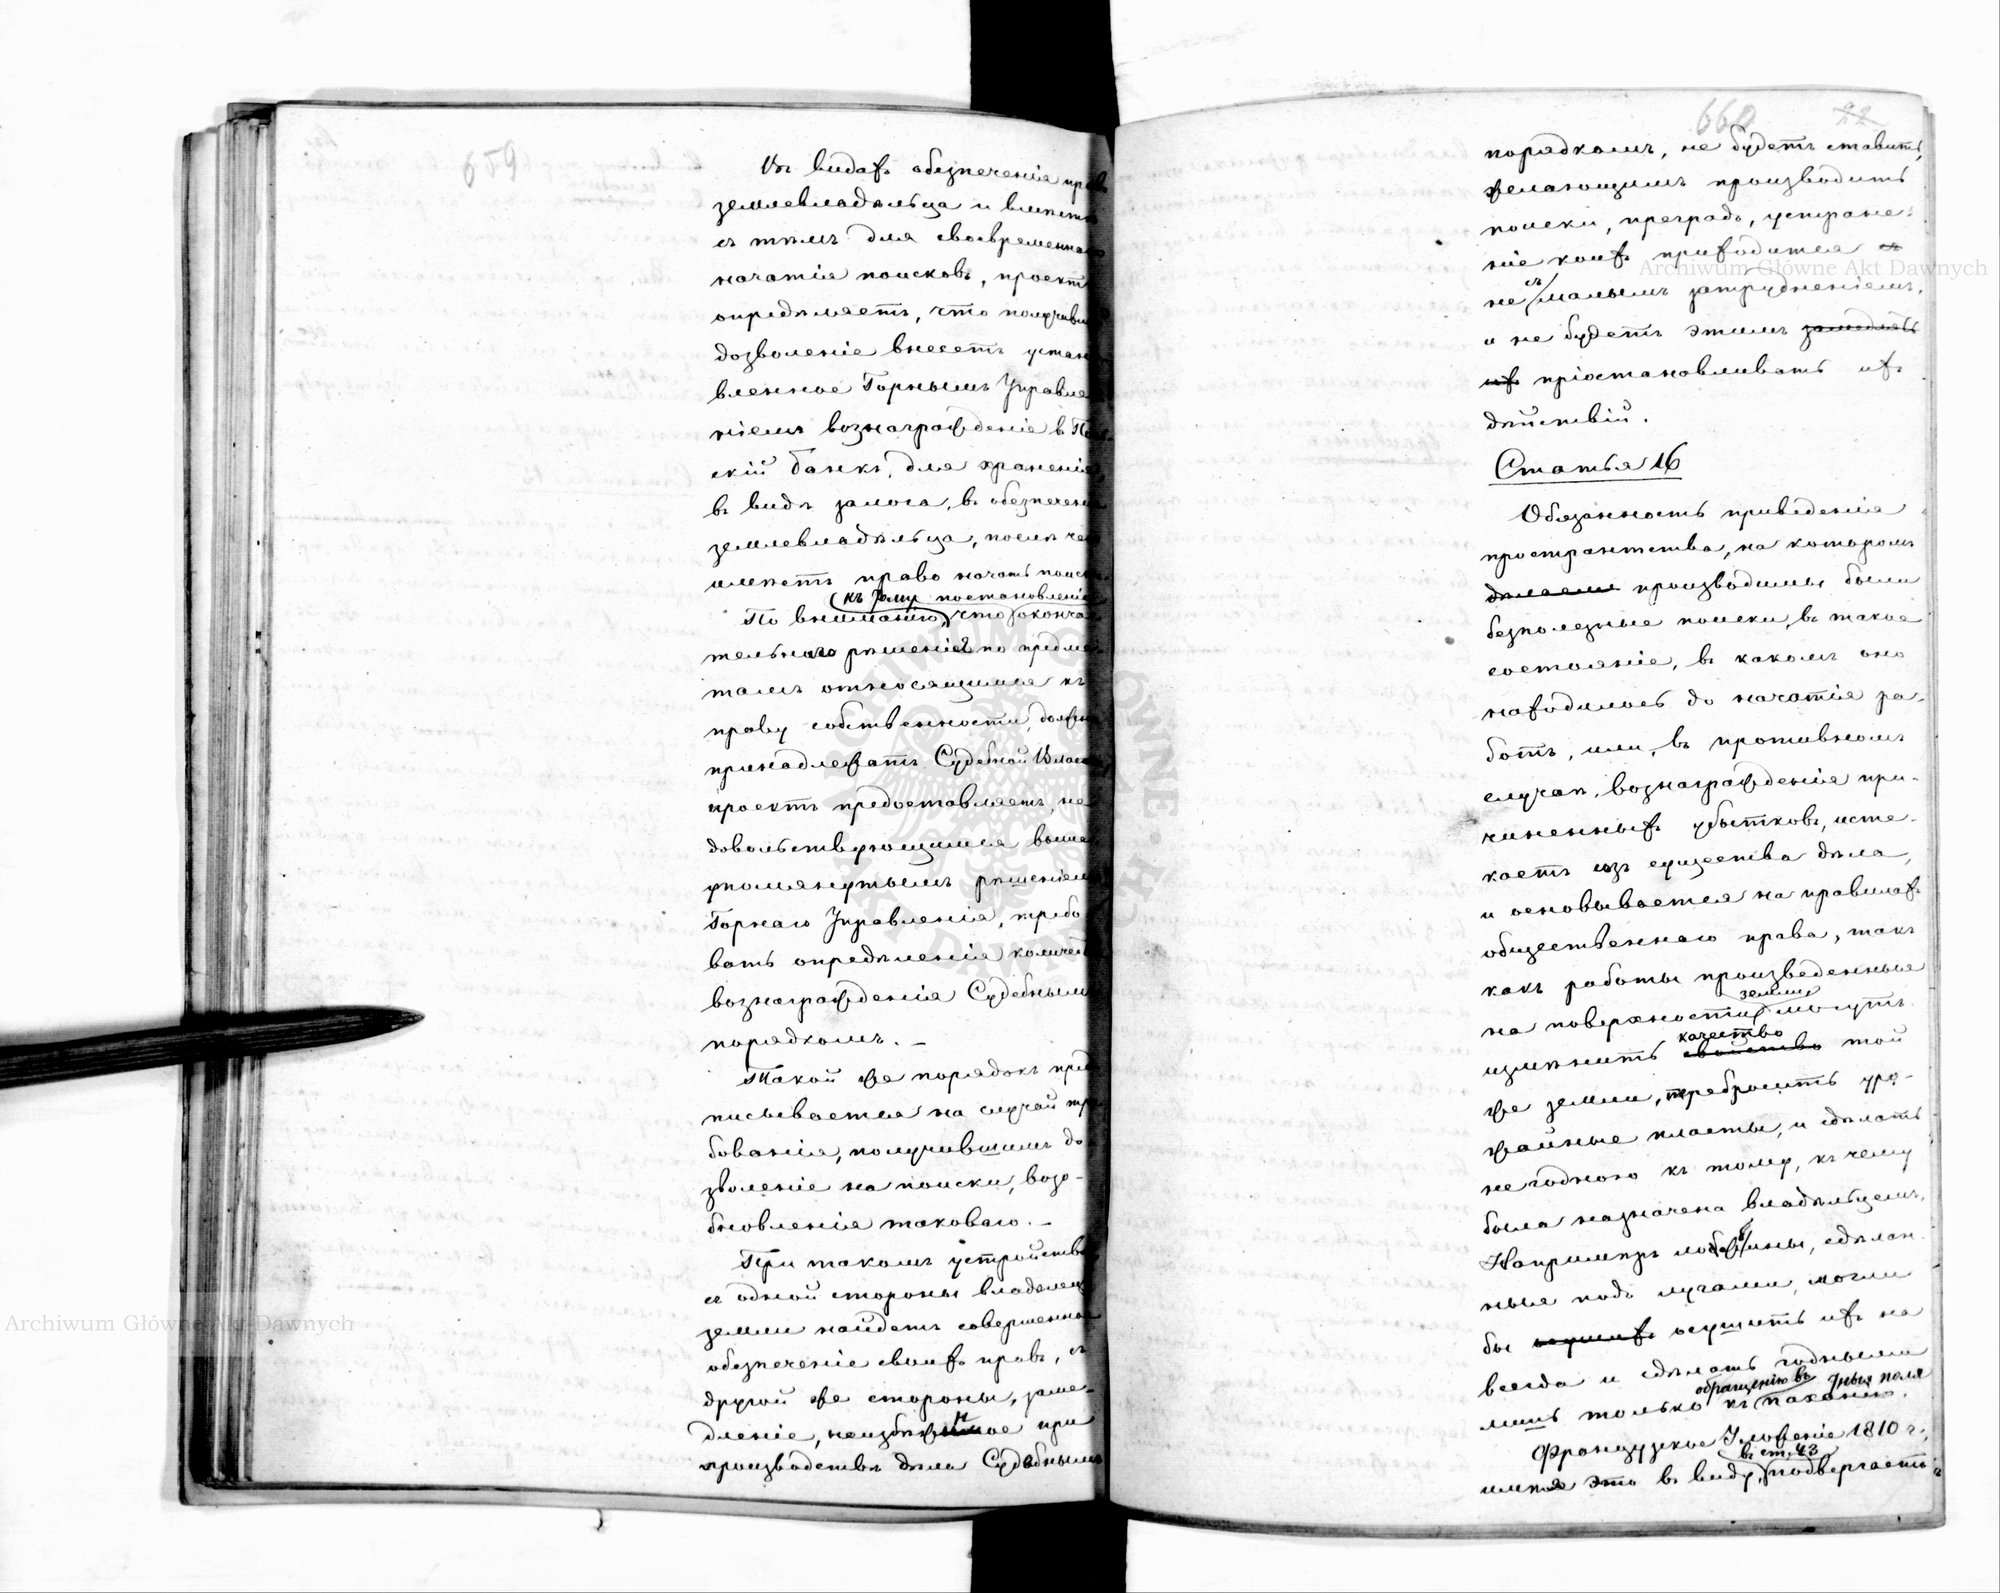 659
Въ видахъ обезпеченія прав
землевладѣльца и вмѣстѣ
съ тѣмъ для своевременнаго
начатія поисковъ, проектъ
опредѣляетъ, что получивш
дозволеніе внесетъ устано
вленное Горнымъ Управле
ніемъ вознагражденіе в По
скій банкъ, для храненія,
въ видѣ залога, въ обезпечені
землевладѣльца, послѣ чег
имѣетъ право начать поиск
къ сему постановленію
По вниманію, что оконча
тельнаго рѣшенія по предме
тамъ относящимся къ
праву собственности, должн
принадлежать Судебной Влас
проектъ предоставляетъ, не
довольствующимся выше
упомянутымъ рѣшеніем
Горнаго Управленія, требо
вать опредѣленія количес
вознагражденія Судебным
порядкомъ. –
Такой же порядокъ пред
писывается на случай тре
бованія, получившимъ до
зволеніе на поиски, возо-
бновленія таковаго. –
При такомъ устройствѣ
съ одной стороны владелец
земли найдетъ совершенно
обезпеченіе своихъ правъ, съ
другой же стороны, заме-
дленіе, неизбѣжное при
производствѣ дѣла Судебнымъ
660 22
порядкомъ, не будетъ ставить,
желающимъ производить
поиски, преградъ, устране-
ніе коихъ приходится съ
съ
не малымъ затрудненіемъ,
и не будетъ этимъ замедлять
ихъ пріостановливать ихъ
дѣйствій.
Статья 16
Обязанность приведенія
пространства, на которомъ
дѣлаемы производимы были
безполезные поиски, въ такое
состояніе, въ какомъ оно
находилось до начатія ра-
ботъ, или, въ противномъ
случаѣ, вознагражденія при-
чиненныхъ убытковъ, исте-
каетъ изъ существа дѣла,
и основывается на правилахъ
общественнаго права, такъ
какъ работы произведенные
земли
на поверхности могутъ
качество
измѣнить свойство той
же земли, перебросить уро-
жайные пласты, и сдѣлать
негодною къ тому, къ чему
была назначена владѣльцемъ.
Напримѣръ ложбины, сдѣлан
ныя подъ лугами, могли
бы осушить ихъ на
всегда и сдѣлать годными
обращенію въ ныя поля
лишь только къ паханію.
Французское Уложеніе 1810 г.,
въ ст. 43
имѣя это въ виду, подвергаетъ
Archiwum Główne Akt Dawnych
Archiwum Główne Akt Dawnych
ARCHIWUM GŁÓWNE AKT DAWNYCH